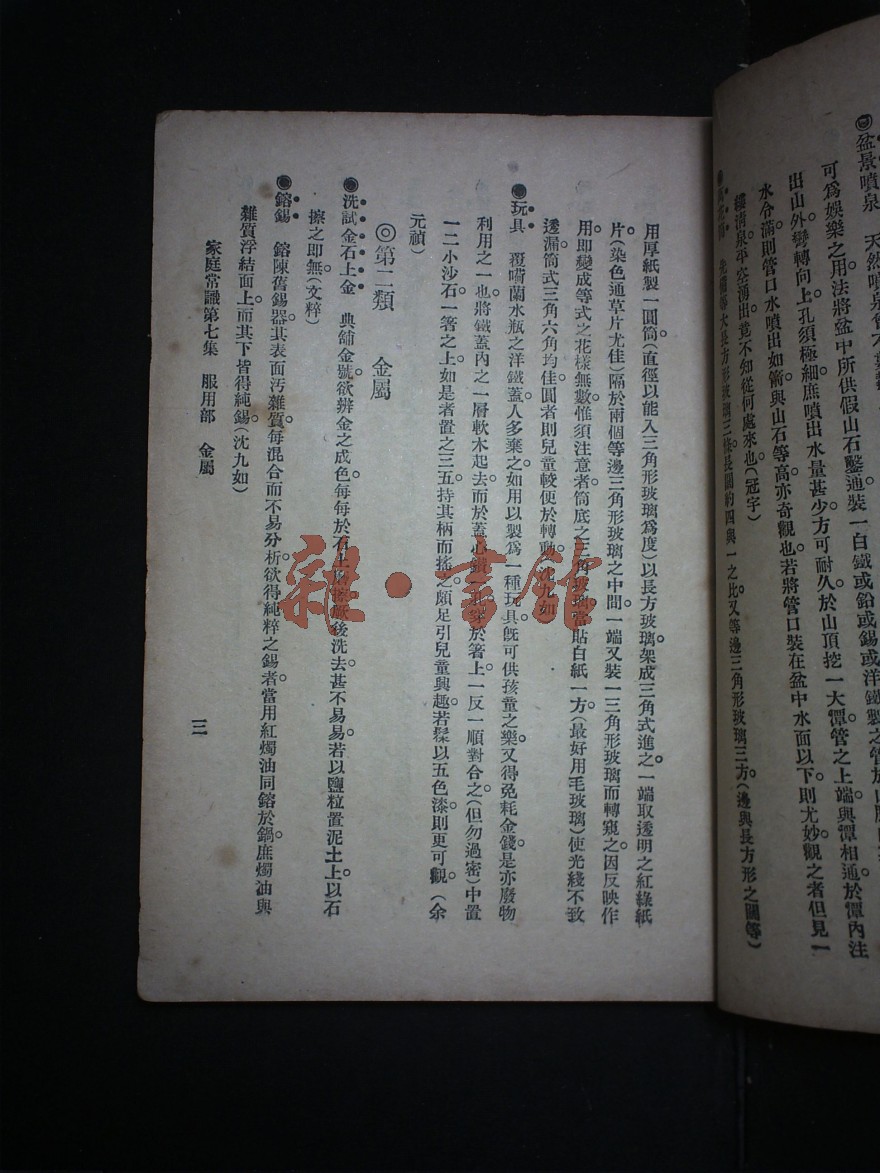 ◎盆景噴泉　天然噴泉曾不
可爲娛樂之用法將盆中所供假山石鑿通裝一白鐵或鉛或錫或洋鐵製之管於
出山外彎轉向上孔須極細庶噴出水量甚少方可耐久於山頂挖一大潭管之上端與潭相通於潭內注
水令滿則管口水噴出如箭與山石等高亦奇觀也若將管口裝在盆中水面以下則尤妙觀之者但見一
縷淸泉平空湧出竟不知從何處來也(冠宇)
先備等大長方形玻璃三條長闊約四與一之比又等邊三角形玻璃三方(邊與長方形之闊等)
用厚紙製一圓筒(直徑以能入三角形玻璃爲度)以長方玻璃架成三角式進之一端取透明之紅綠紙
片(染色通草片尤佳)隔於兩個等邊三角形玻璃之中間一端又裝一三角形玻璃而轉窺之因反映作
用卽變成等式之花樣無數惟須注意者筒底之三角玻璃當貼白紙一方(最好用毛玻璃)使光綫不致
透漏筒式三角六角均佳圓者則兒童較便於轉動沈九如
●玩具　覆嗬蘭水瓶之洋鐵蓋人多棄之如用以製爲一種玩具旣可供孩童之樂又得免耗金錢是亦廢物
利用之一也將鐵蓋內之一層軟木起去而於蓋心鑽一孔穿於箸上一反一順對合之(但勿過密)中置
一二小沙石一箸之上如是者置之三五持其柄而搖之頗足引兒童興趣若髹以五色漆則更可觀(余
元禎)
◎第二類　金屬
●洗試金石上金　典舖金號欲辨金之成色每每於石上磨擦嗣後洗去甚不易易若以鹽粒置泥土上以石
擦之卽無(文粹)
●鎔錫　鎔陳舊錫器其表面汚雜質每混合而不易分析欲得純粹之錫者當用紅燭油同鎔於鍋庶燭油與
雜質浮結面上而其下皆得純錫(沈九如)
家庭常識第七集　服用部　金屬
三
雜·書館